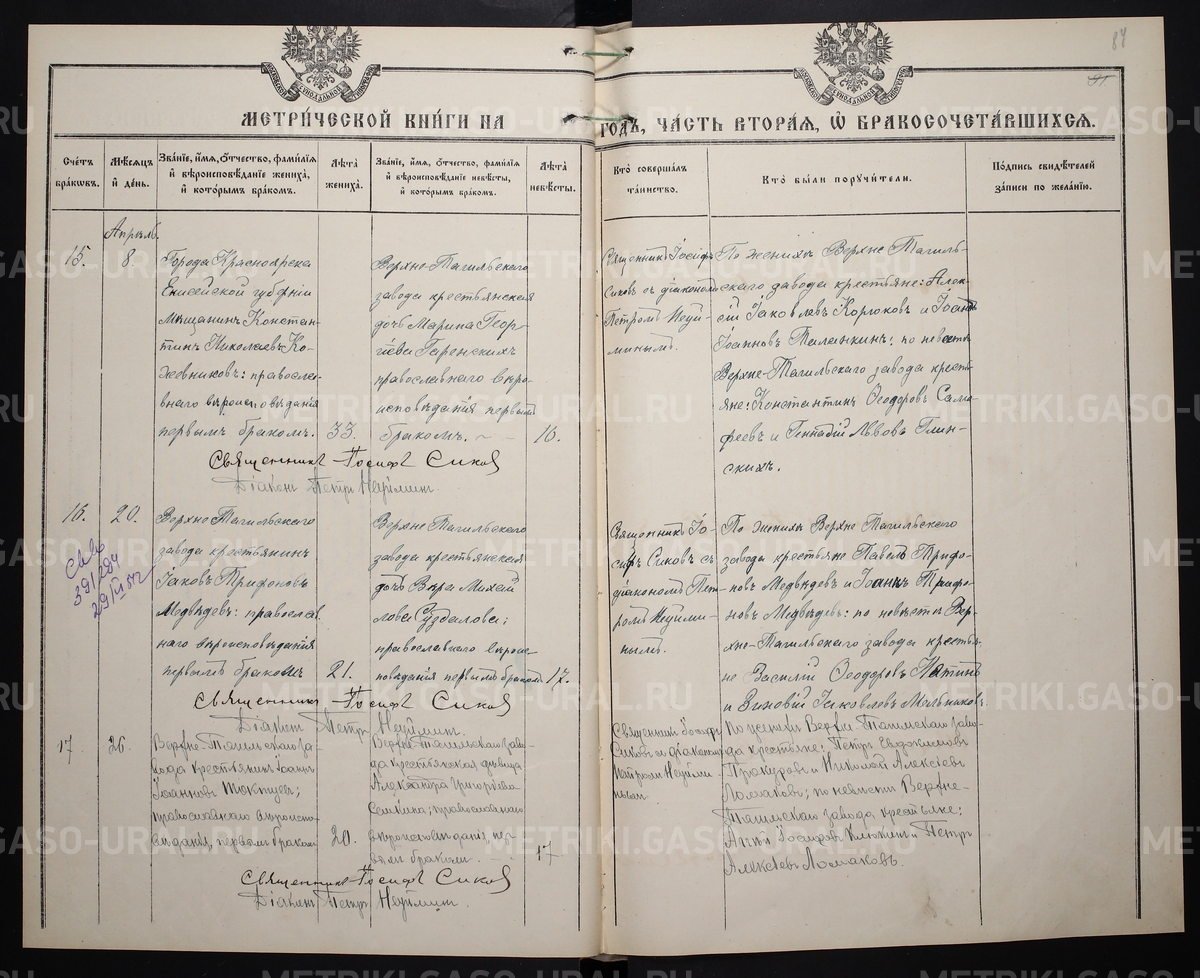 87
МЕТРИ́ЧЕСКОЙ КНИ́ГИ НА
ГОДЪ, ЧА́СТЬ ВТОРА́Я, Ѽ БРАКОСОЧЕТА́ВШИХСЯ.
Сче́тъ бра́ковъ.
Мѣ́сяцъ и҆ день.
Зва́нїе, и҆́мя, ѻ҆́тчество, фами́лїя и҆ вѣроисповѣ́данїе жениха̀, и҆ кото́рымъ бра́комъ.
Лѣ́та жениха̀.
Зва́нїе, и҆́мя, ѻ҆́тчество, фами́лїя и҆ вѣроисповѣ́данїе невѣ́сты, и҆ кото́рымъ бра́комъ.
Лѣ́та невѣ́сты.
Кто̀ соверша́лъ та́инство.
Кто̀ бы́ли поручи́тели.
По́дпись свидѣ́телей за́писи по жела́нїю.
15.
Апрѣль.
8.
Города Красноярска
Енисейской губерніи
мѣщанинъ Констан-
тинъ Николаевъ Ко-
жевниковъ: православ-
наго вѣроисповѣданія
первымъ бракомъ.
33.
Верхно-Тагильскаго
завода крестьянская
дочь Марина Геор-
гіева Гаренскихъ
православнаго вѣро-
исповѣданія первымъ
бракомъ.
16.
Священникъ Іосифъ
Сиковъ съ діакономъ
Петромъ Неуй-
минымъ.
По женихѣ Верхне Тагиль-
скаго завода крестьяне: Алек-
сій Іаковлевъ Корюковъ и Іоаннъ
Іоанновъ Таланкинъ: по невѣстѣ
Верхне-Тагильскаго завода кресть-
яне: Константинъ Ѳеодоровъ Сала-
феевъ и Геннадій Львовъ Глин-
скихъ.
Священникъ Іосифъ Сиковъ
Діаконъ Петръ Неуйминъ.
16.
20.
Верхно Тагильскаго
завода крестьянинъ
Іаковъ Трифоновъ
Медвѣдевъ: православ
наго вѣроисповѣданія
первымъ бракомъ
21.
Верхне Тагильскаго
завода крестьянская
дочь Вѣра Михай
лова Суздалова;
православнаго вѣроис-
повѣданія первымъ бракомъ
17.
Священникъ Іо-
сифъ Сиковъ съ
діакономъ Пет-
ромъ Неуйми-
нымъ.
По женихѣ Верхно Тагильскаго
завода крестьяне Павелъ Трифо-
новъ Медвѣдевъ и Іоаннъ Трифо-
новъ Медвѣдевъ: по невѣстѣ Вер-
хно-Тагильскаго завода крестья-
не Василій Ѳеодоровъ
и Зиновій Іаковлевъ Мельниковъ.
39/284
Священникъ Іосифъ Сиковъ
Діаконъ Петръ Неуйминъ.
17
26.
Верхне-Тагильскаго за-
вода крестьянинъ Іоаннъ
Іоанновъ
православнаго вѣроиспо-
вѣданія, первымъ бракомъ
20.
Верхне-Тагильскаго заво-
да крестьянская дѣвица
Александра Григорьева
Семкина; православнаго
вѣроисповѣданія, пер-
вымъ бракомъ.
17
Священникъ Іосифъ
Сиковъ съ діакономъ
Петромъ Неуйми-
нымъ
По женихѣ Верхне-Тагильскаго заво-
да крестьяне: Петръ Евдокимовъ
и Николай Алексѣевъ
Ломаковъ; по невѣстѣ Верхне-
Тагильскаго завода крестьяне:
Іосифовъ Клюкинъ и Петръ
Алексѣевъ Ломаковъ.
Священникъ Іосифъ Сиковъ
Діаконъ Петръ Неуйминъ.
METRIKI.GASO-URAL.RU